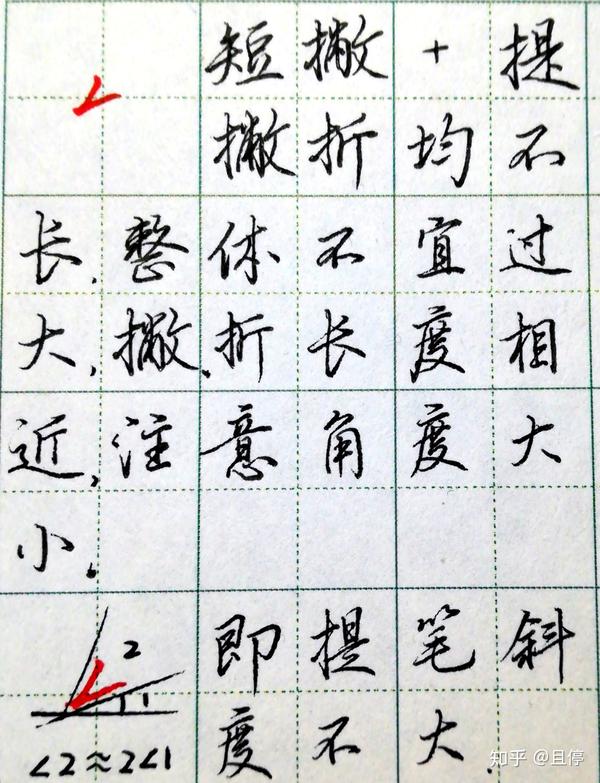 短撇+提
撇折均不
长,整体不宜过
大,撇、折长度相
近,注意角度大
小。
即提笔斜
度不大
2
1
∠2≈2∠1
知乎 @且停